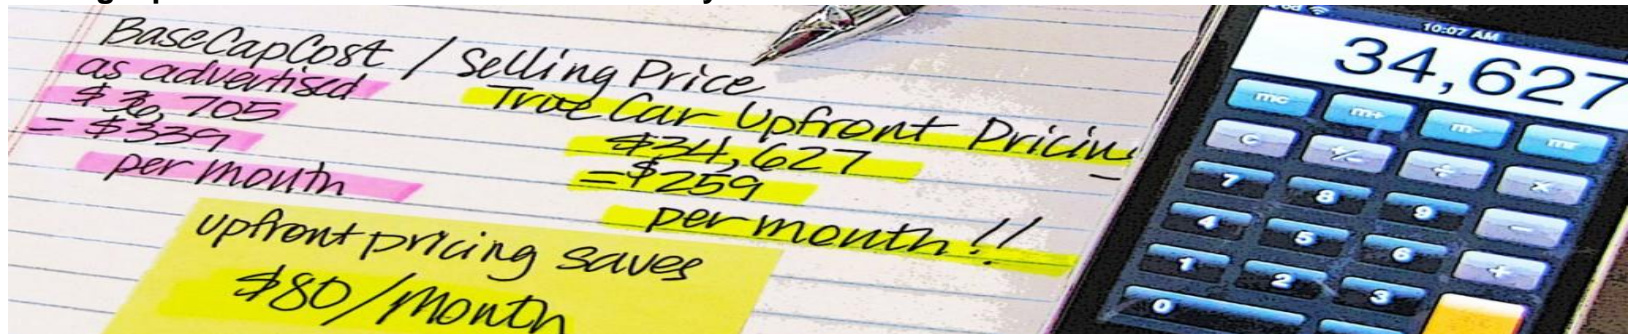 BaseCapCost / Selling Price
as advertised
$36,705
= $339
per month
True Car Upfront Pricing
$34,627
= $259
per month!!
upfront pricing saves
$80/month
10:07 AM
34,627
mc m+ m- mr
C +/- ÷ ×
7 8 9 −
4 5 6 +
1 2 3
0